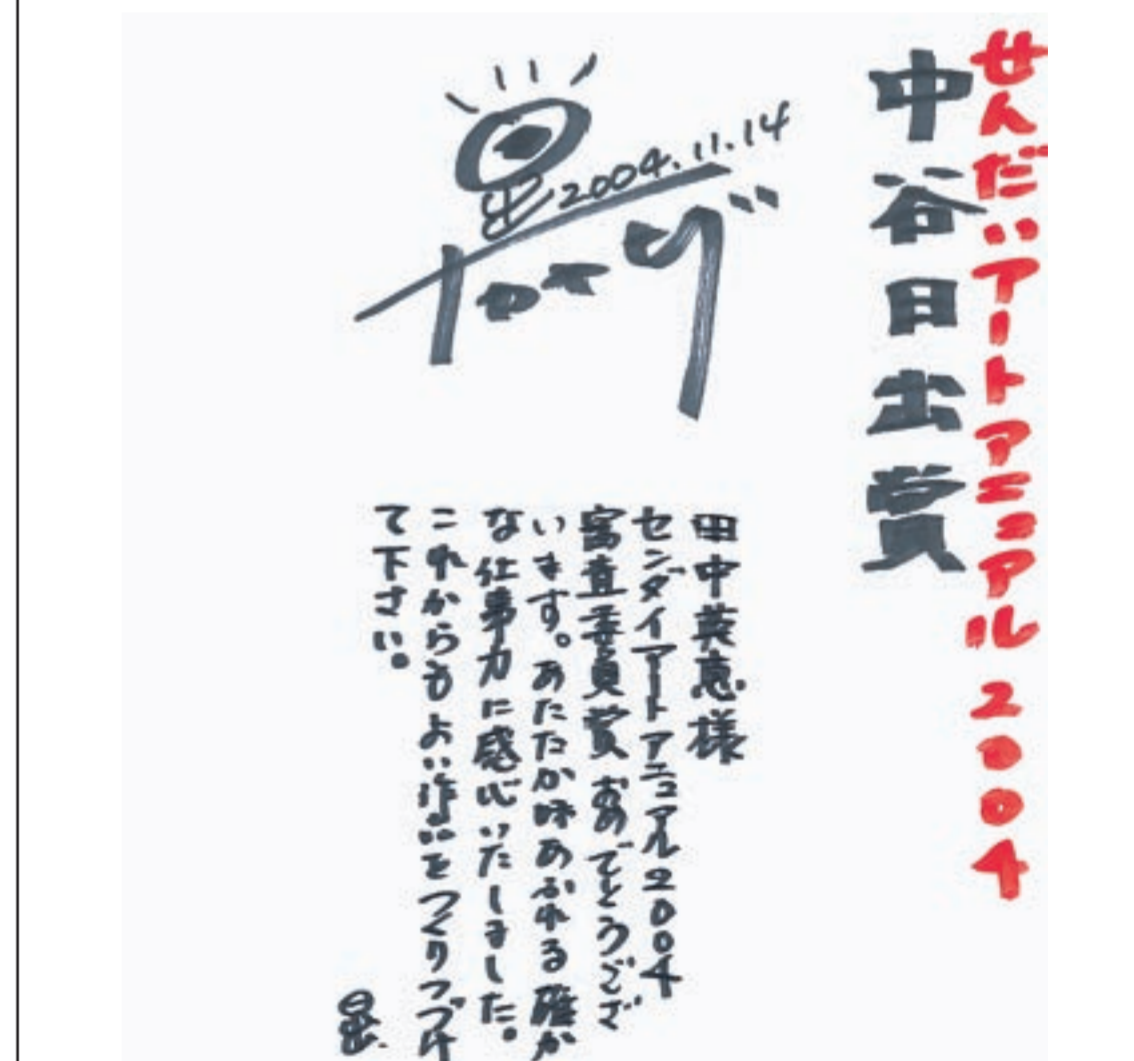 せんだいアートアニュアル2004
中谷日出賞
2004.11.14
田中英恵様
センダイアートアニュアル2004
審査委員賞おめでとうござ
います。あたたか味あふれる確か
な仕事力に感心いたしました。
これからもよい作品をつくりつづけ
て下さい。
日出